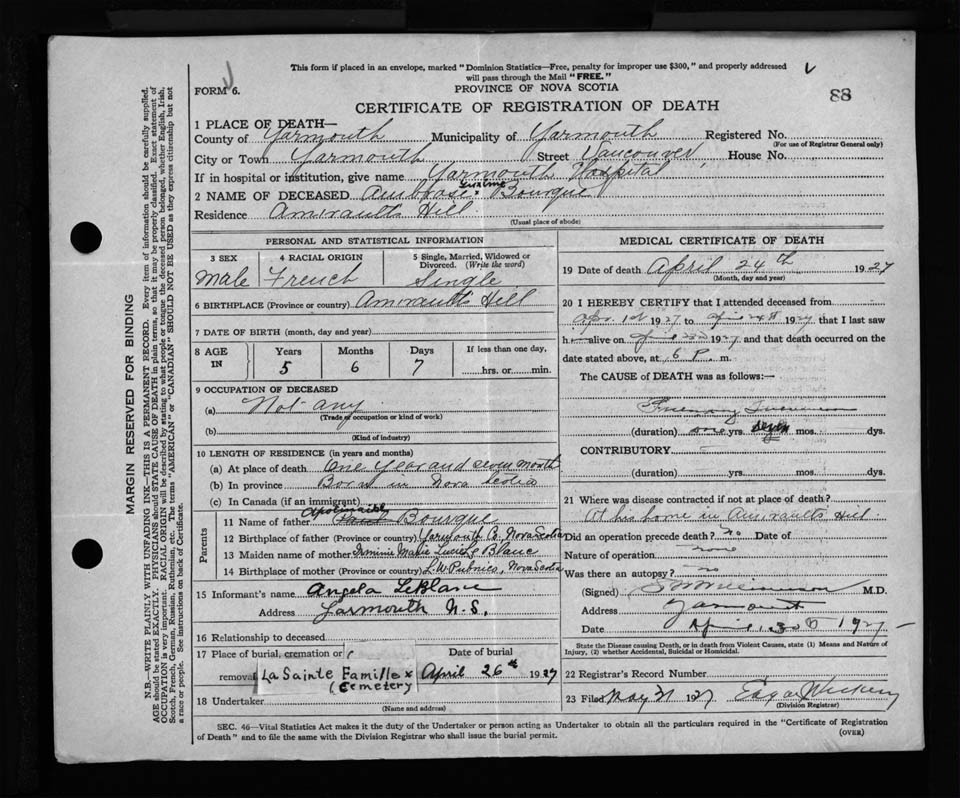 This form if placed in an envelope, marked "Dominion Statistics—Free, penalty for improper use $300," and properly addressed
will pass through the Mail "FREE."
FORM 6.
PROVINCE OF NOVA SCOTIA
88
CERTIFICATE OF REGISTRATION OF DEATH
1 PLACE OF DEATH—
County of Yarmouth Municipality of Yarmouth Registered No.
(For use of Registrar General only)
City or Town Yarmouth Street Vancouver House No.
If in hospital or institution, give name Yarmouth Hospital
2 NAME OF DECEASED Ambrose Bourque
Residence Amirault's Hill
(Usual place of abode)
PERSONAL AND STATISTICAL INFORMATION
3 SEX 4 RACIAL ORIGIN 5 Single, Married, Widowed or Divorced. (Write the word)
Male French Single
6 BIRTHPLACE (Province or country) Amirault's Hill
7 DATE OF BIRTH (month, day and year)
8 AGE IN Years Months Days If less than one day,
5 6 7 hrs. or min.
9 OCCUPATION OF DECEASED
(a) Not any
(Trade, occupation or kind of work)
(b)
(Kind of industry)
10 LENGTH OF RESIDENCE (in years and months)
(a) At place of death One year and seven month
(b) In province Born in Nova Scotia
(c) In Canada (if an immigrant)
Parents
11 Name of father Apolinaire Bourque
12 Birthplace of father (Province or country) Yarmouth Co. Nova Scotia
13 Maiden name of mother Marie Lucie Le Blanc
14 Birthplace of mother (Province or country) L.W. Pubnico, Nova Scotia
15 Informant's name Angela LeBlanc
Address Yarmouth N.S.
16 Relationship to deceased
17 Place of burial, cremation or removal Date of burial
La Sainte Famille x April 26th 1927
(Cemetery
18 Undertaker
(Name and address)
MEDICAL CERTIFICATE OF DEATH
19 Date of death April 24th 1927
(Month, day and year)
20 I HEREBY CERTIFY that I attended deceased from
Apr. 1st 1927 to April 24th 1927 that I last saw
h alive on 1927 and that death occurred on the
date stated above, at 6 P. m.
The CAUSE of DEATH was as follows:—
(duration) one yrs. seven mos. dys.
CONTRIBUTORY
(duration) yrs. mos. dys.
21 Where was disease contracted if not at place of death?
At his home in Amirault's Hill
Did an operation precede death? No Date of
Nature of operation none
Was there an autopsy? no
(Signed) M.D.
Address Yarmouth
Date April 30 1927
State the Disease causing Death, or in death from Violent Causes, state (1) Means and Nature of Injury, (2) whether Accidental, Suicidal or Homicidal.
22 Registrar's Record Number
23 Filed May 31 1927 Edgar
(Division Registrar)
SEC. 46—Vital Statistics Act makes it the duty of the Undertaker or person acting as Undertaker to obtain all the particulars required in the "Certificate of Registration
of Death" and to file the same with the Division Registrar who shall issue the burial permit.
(OVER)
MARGIN RESERVED FOR BINDING
N.B.—WRITE PLAINLY WITH UNFADING INK—THIS IS A PERMANENT RECORD. Every item of information should be carefully supplied.
AGE should be stated EXACTLY. PHYSICIANS should STATE CAUSE OF DEATH in plain terms, so that it may be properly classified. Exact statement of
OCCUPATION is very important. RACIAL ORIGIN will be described by stating to what people or tongue the deceased person belonged, whether English, Irish,
Scotch, French, German, Russian, Ruthenian, etc. The terms "AMERICAN" or "CANADIAN" SHOULD NOT BE USED as they express citizenship but not
a race or people. See instructions on back of Certificate.